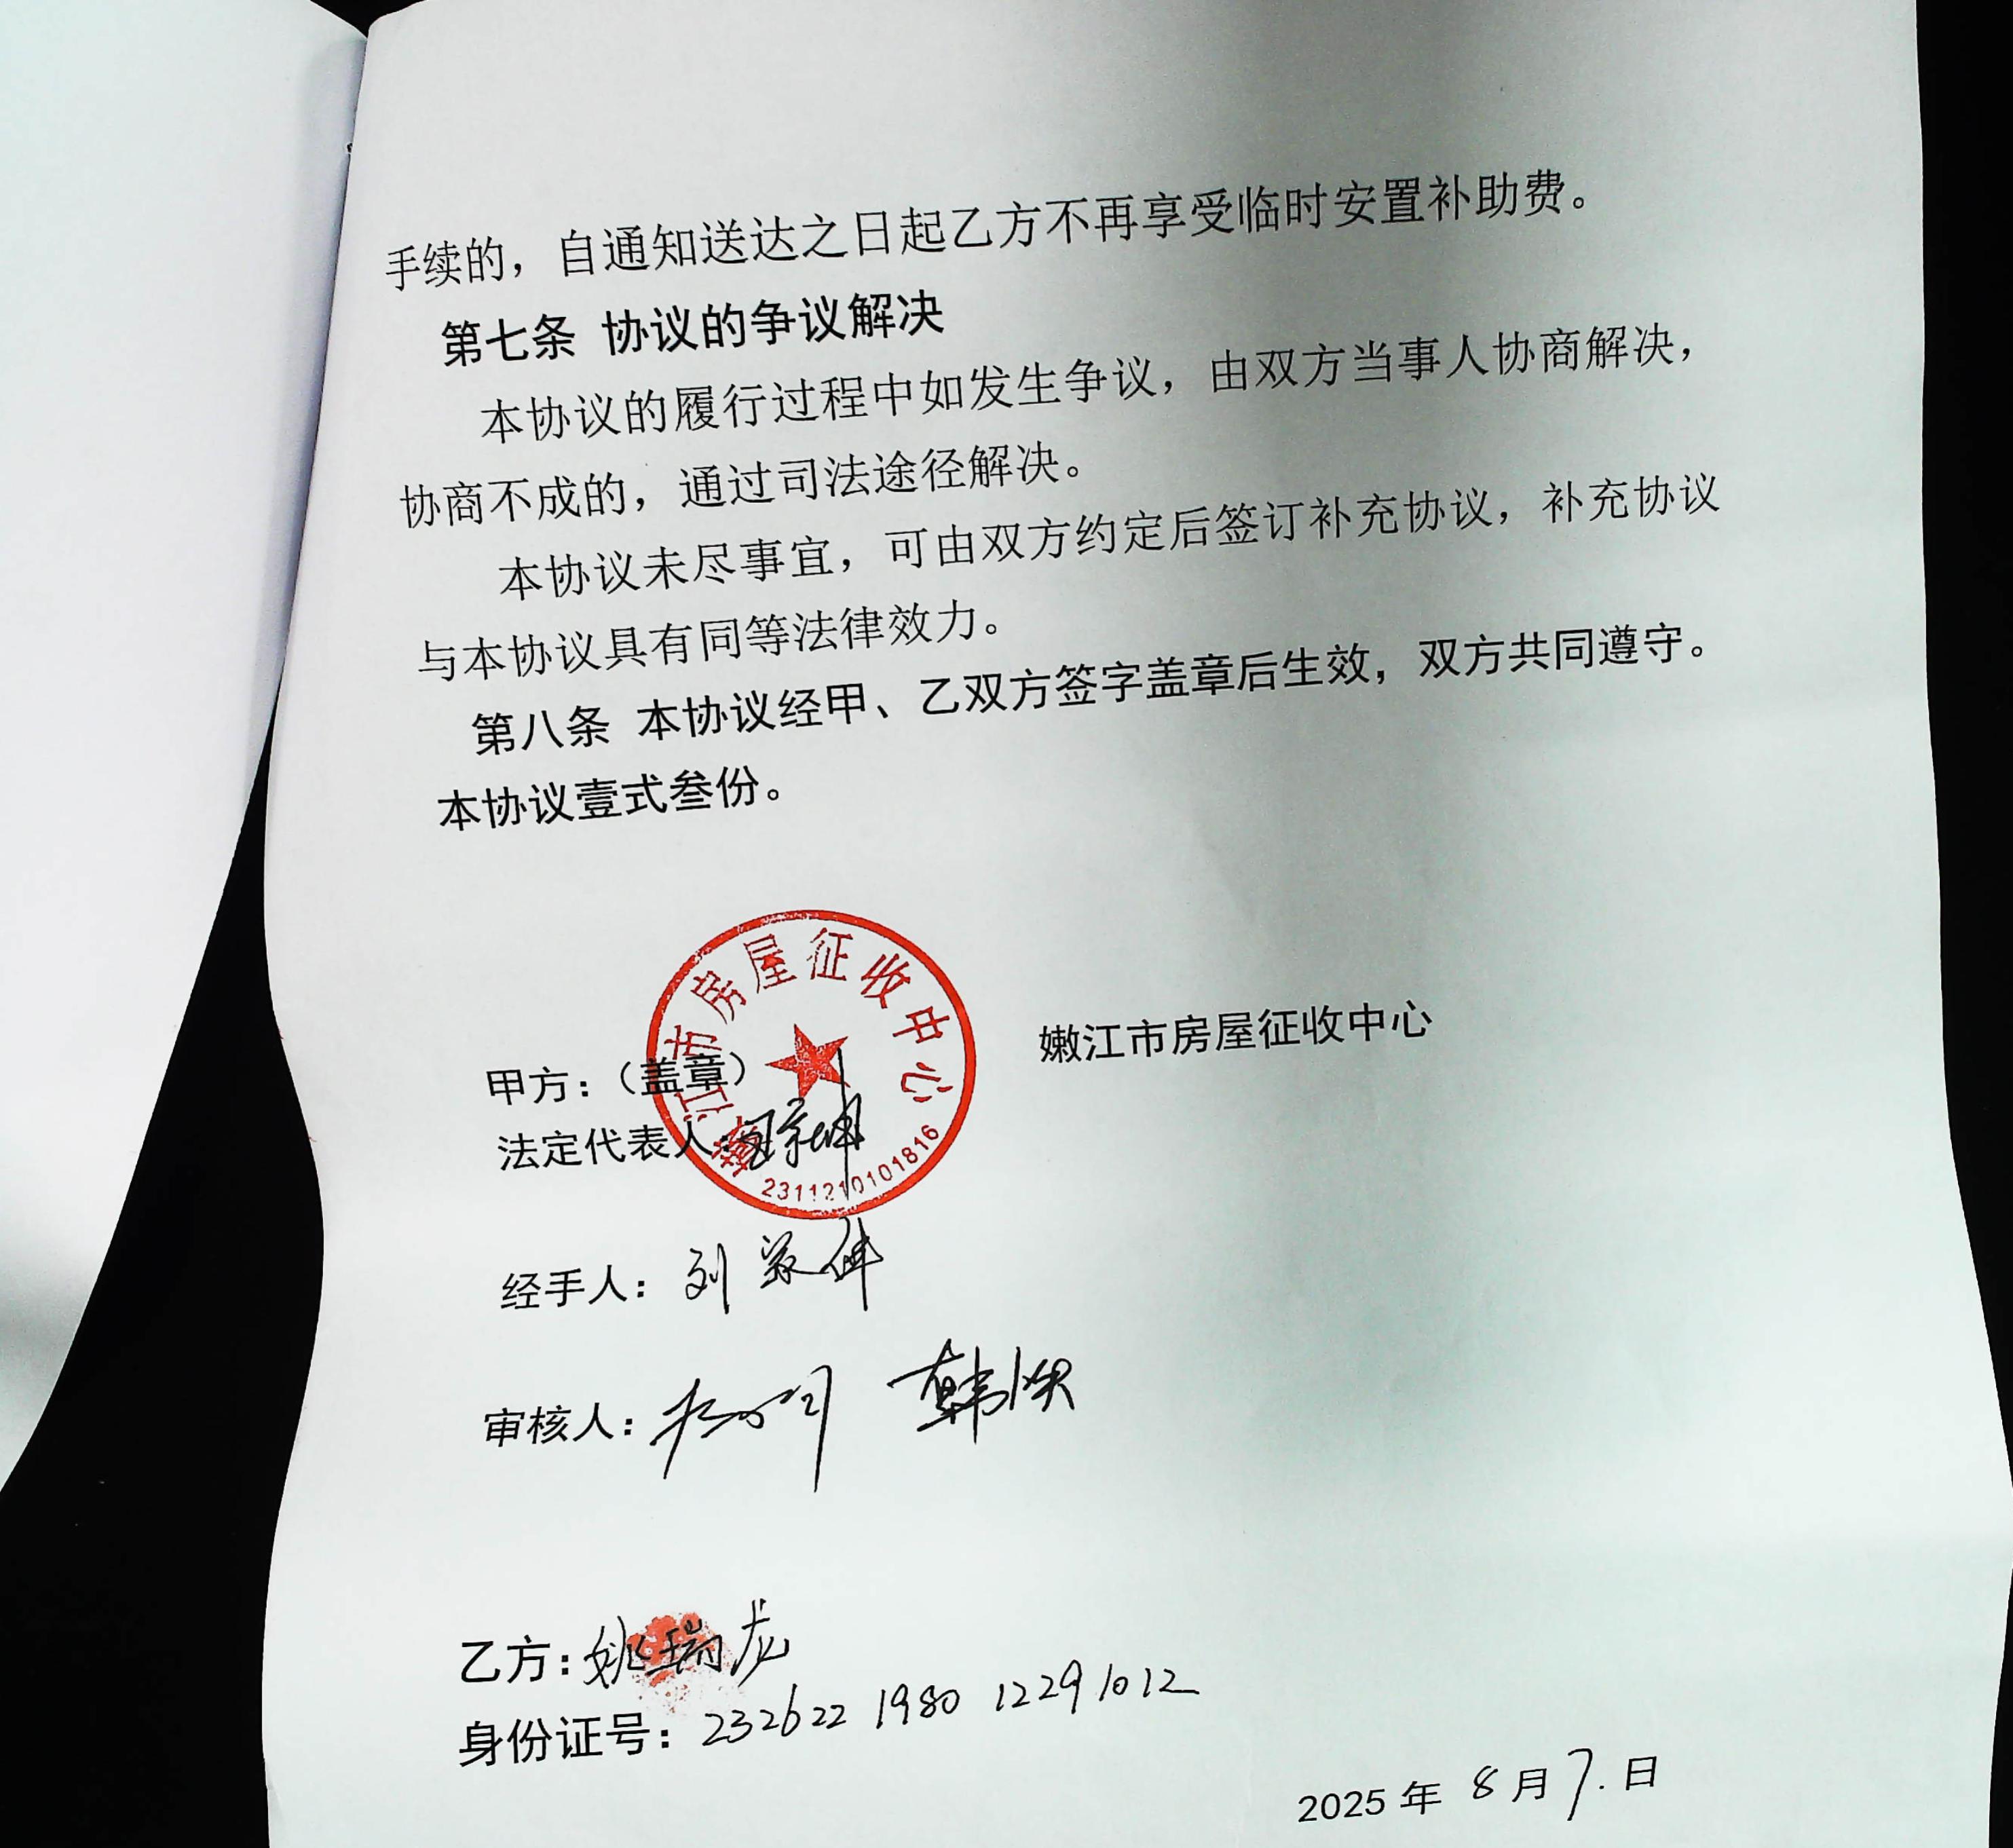 手续的，自通知送达之日起乙方不再享受临时安置补助费。
第七条 协议的争议解决
本协议的履行过程中如发生争议，由双方当事人协商解决，
协商不成的，通过司法途径解决。
本协议未尽事宜，可由双方约定后签订补充协议，补充协议
与本协议具有同等法律效力。
第八条 本协议经甲、乙双方签字盖章后生效，双方共同遵守。
本协议壹式叁份。
嫩江市房屋征收中心
2311210101816
甲方：（盖章） 嫩江市房屋征收中心
法定代表人：
经手人：刘
审核人： 韩
乙方：姚瑞龙
身份证号：232622 1980 12291012
2025 年 8 月 7. 日